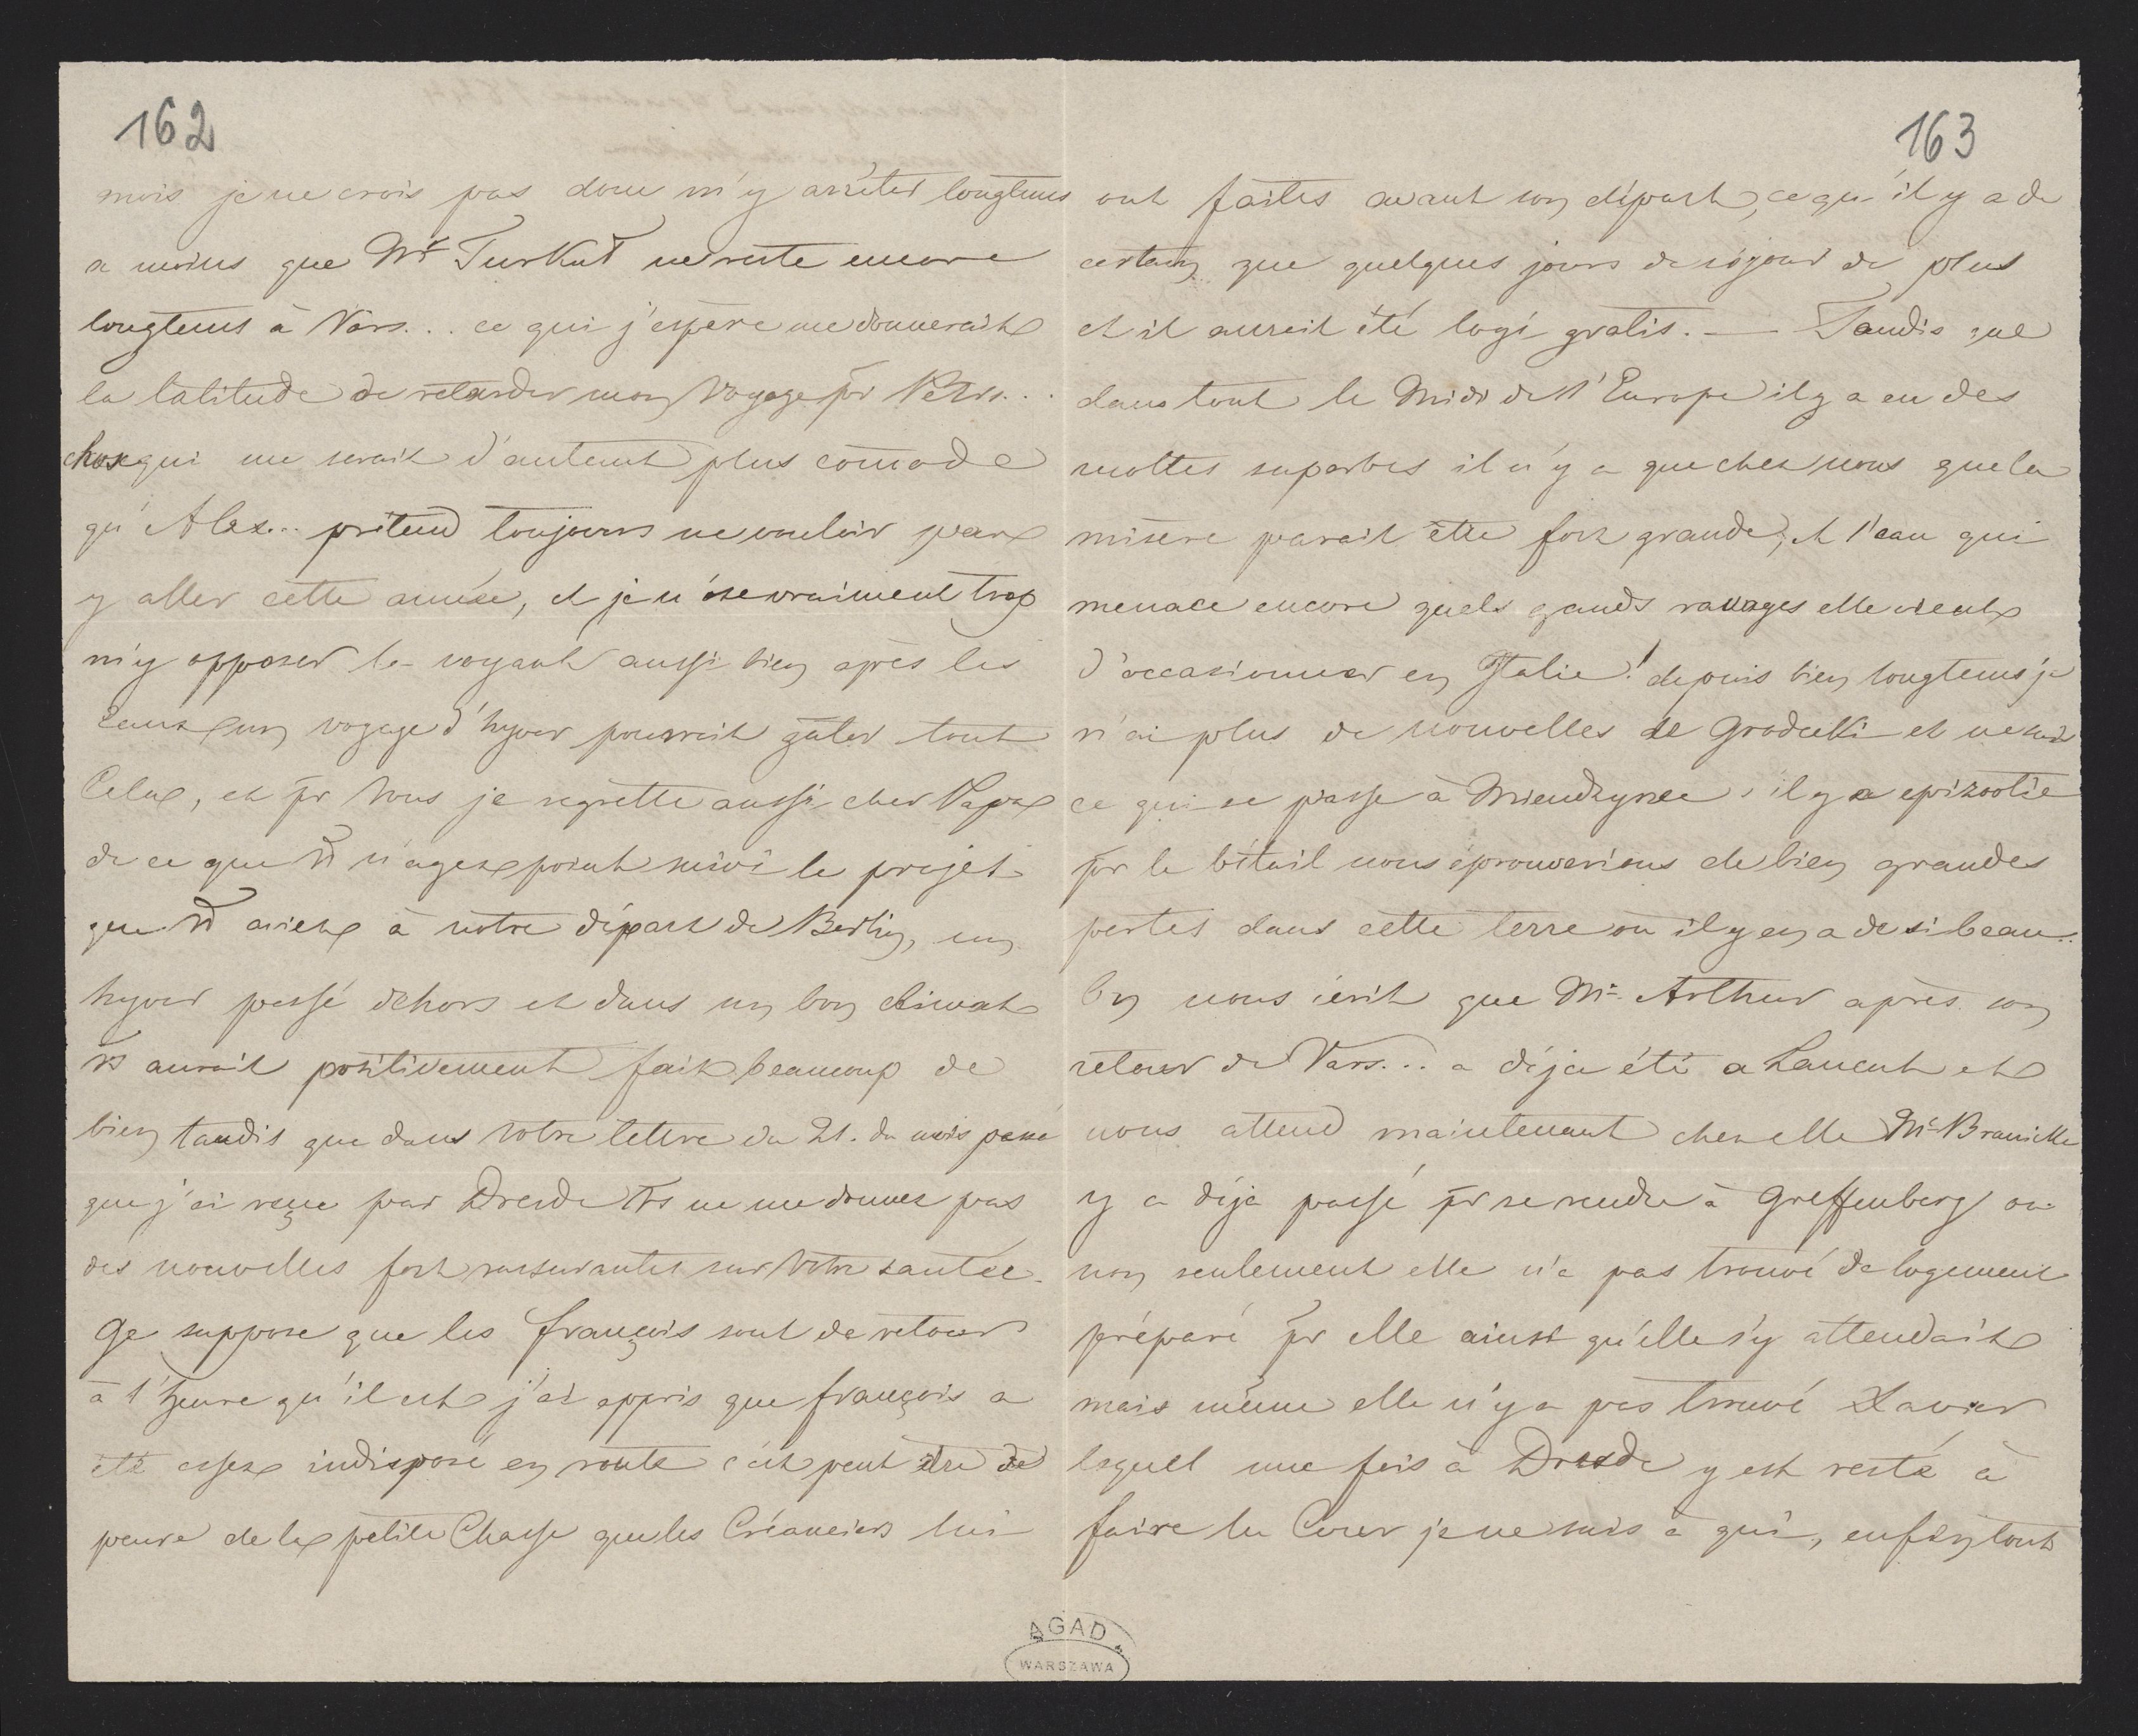 162
mois je ne crois pas donc m'y arrêter longtems
a moins que Mr Turkuł ne reste encore
longtems à Vars... ce qui j'espère me donnerait
la latitude de retarder mon voyage pr Peters...
chose qui me serait d'autant plus comode
qu'Alex... prétend toujours ne vouloir pas
y aller cette année, et je n'ose vraiment trop
m'y opposer le voyant aussi bien après les
eaux un voyage d'hyver pourrait gâter tout
Cela, et pr Vous je regrette aussi cher Papa
de ce que Vs n'ayez point suivi le projet
que Vs aviez à notre départ de Berlin, un
hyver passé dehors et dans un bon climat
Vs aurait positivement fait beaucoup de
bien tandis que dans Votre lettre du 21. du mois passé
que j'ai reçue par Dresde Vs ne me donnez pas
des nouvelles fort rassurantes sur Votre santée.
Je suppose que les françois sont de retour
à l'heure qu'il est j'ai appris que françois a
été assez indisposé en route c'est peut être de
peure de la petite Chasse que les Créanciers lui
163
ont faites avant son départ, ce qu'il y a de
certain que quelques jours de séjour de plus
et il aurait été logé gratis. — Tandis que
dans tout le Midi de l'Europe il y a eu des
recoltes superbes il n'y a que chez nous que la
misere parait être fort grande, et l'eau qui
menace encore quels grands ravages elle vient
d'occasionner en Italie! depuis bien longtems je
n'ai plus de nouvelles de Grodecki et ne sais
ce qui se passe à Miendzyrzec s'il y a epizootie
pr le bétail nous éprouverions de bien grandes
pertes dans cette terre où il y en a de si beau..
On nous écrit que Me Arthur après son
retour de Vars... a déja été a Lancut et
nous attend maintenant chez elle Me Branicka
y a déja passé pr se rendre à Greffenberg ou
non seulement elle n'a pas trouvé de logement
préparé pr elle ainsi qu'elle s'y attendait
mais même elle n'y a pas trouvé Xavier
lequel une fois à Dresde y est resté à
faire la Cour je ne sais à qui, enfin tout
AGAD
WARSZAWA